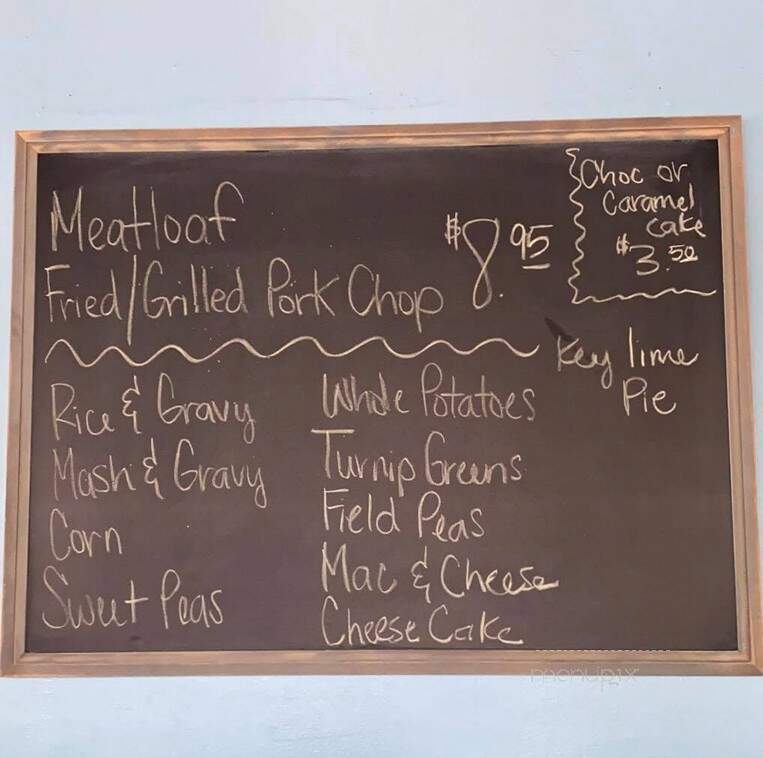 Meatloaf
Fried/Grilled Pork Chop
$8.95
Choc or
Caramel
cake
$3.50
Key lime
Pie
Rice & Gravy
Mash & Gravy
Corn
Sweet Peas
Whole Potatoes
Turnip Greens
Field Peas
Mac & Cheese
Cheese Cake
menupix